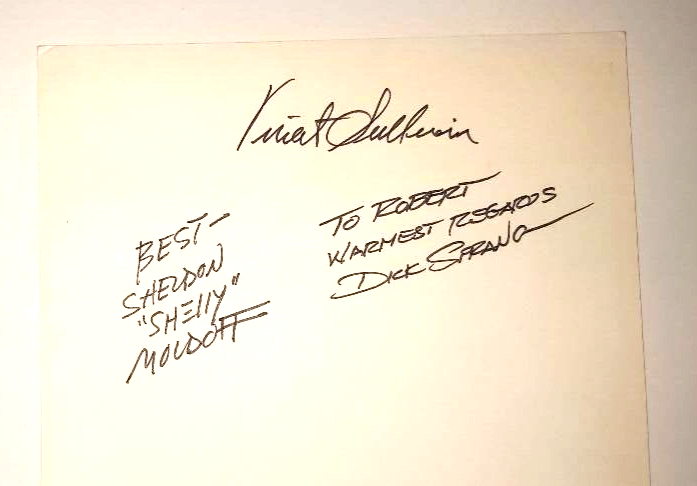 Vincent Sullivan
TO ROBERT
WARMEST REGARDS
DICK SPRANG
BEST-
SHELDON
"SHELLY"
MOLDOFF